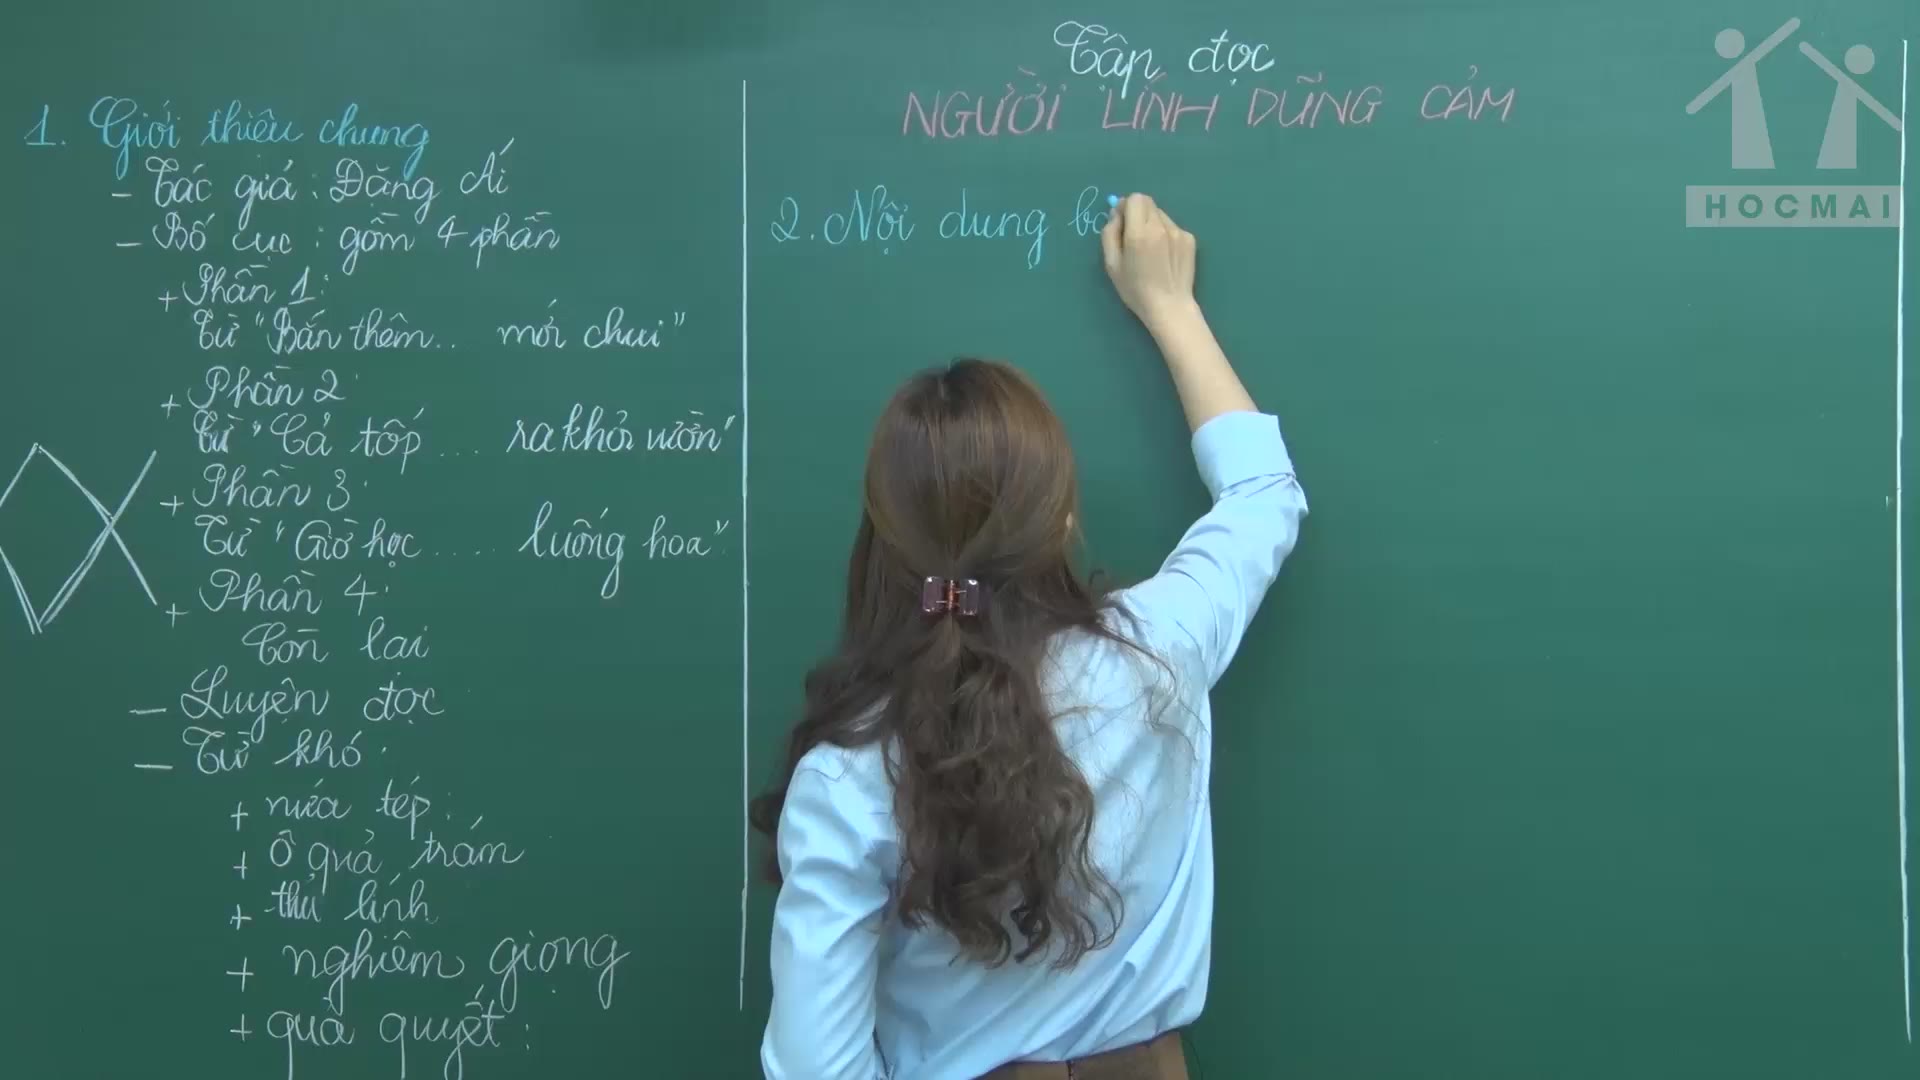 Tập đọc
NGƯỜI LÍNH DŨNG CẢM
HOCMAI
1. Giới thiệu chung
- Tác giả : Đặng Ái
- Bố cục : gồm 4 phần
+ Phần 1:
Từ "Bắn thêm... mới chui"
+ Phần 2:
Từ "Cả tốp .... ra khỏi vườn"
+ Phần 3:
Từ "Giờ học ..... luống hoa"
+ Phần 4:
Còn lại
- Luyện đọc
- Từ khó:
+ nứa tép:
+ Ô quả trám
+ thủ lĩnh
+ nghiêm giọng
+ quả quyết:
2. Nội dung